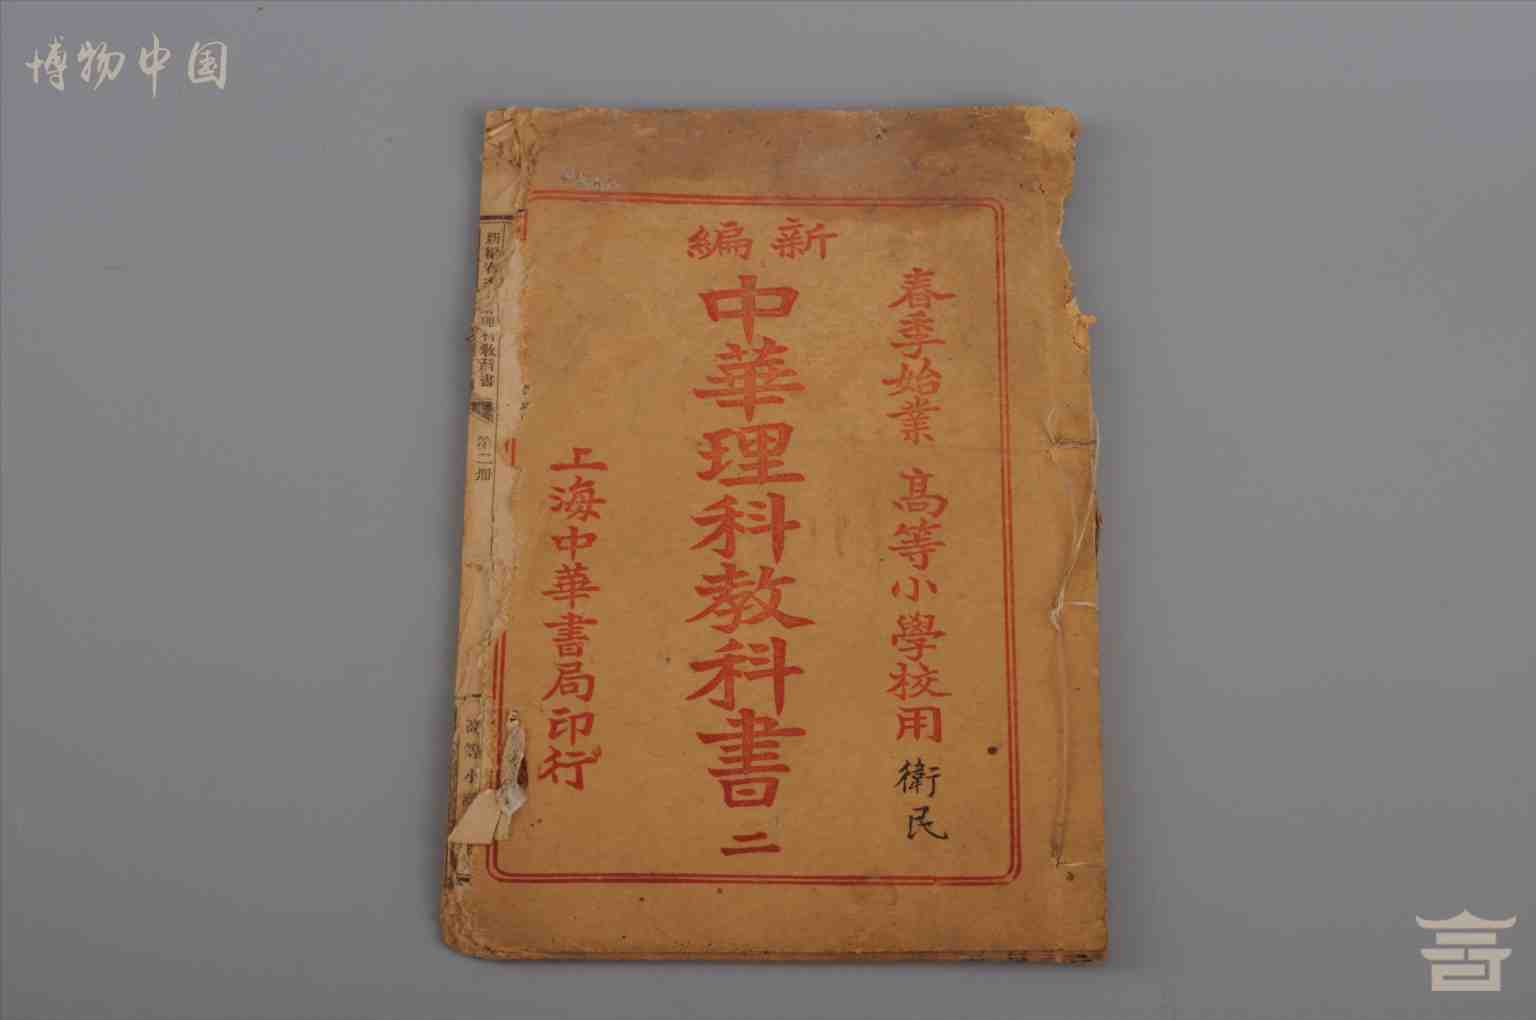 博物中国
新編
中華理科教科書 二
春季始業 高等小學校用
衛民
上海中華書局印行
科教科書
第二册
高等小